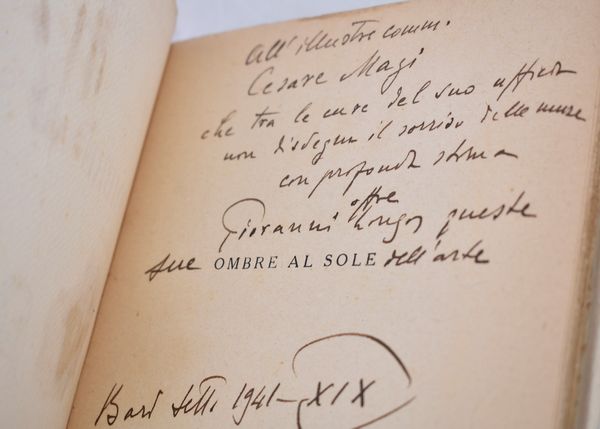 All'illustre comm.
Cesare Magi
che tra le cure del suo ufficio
non disdegna il sorriso delle muse
con profonda stima
offre
Giovanni Longo queste
sue OMBRE AL SOLE dell'arte
Bari Sett. 1941 - XIX